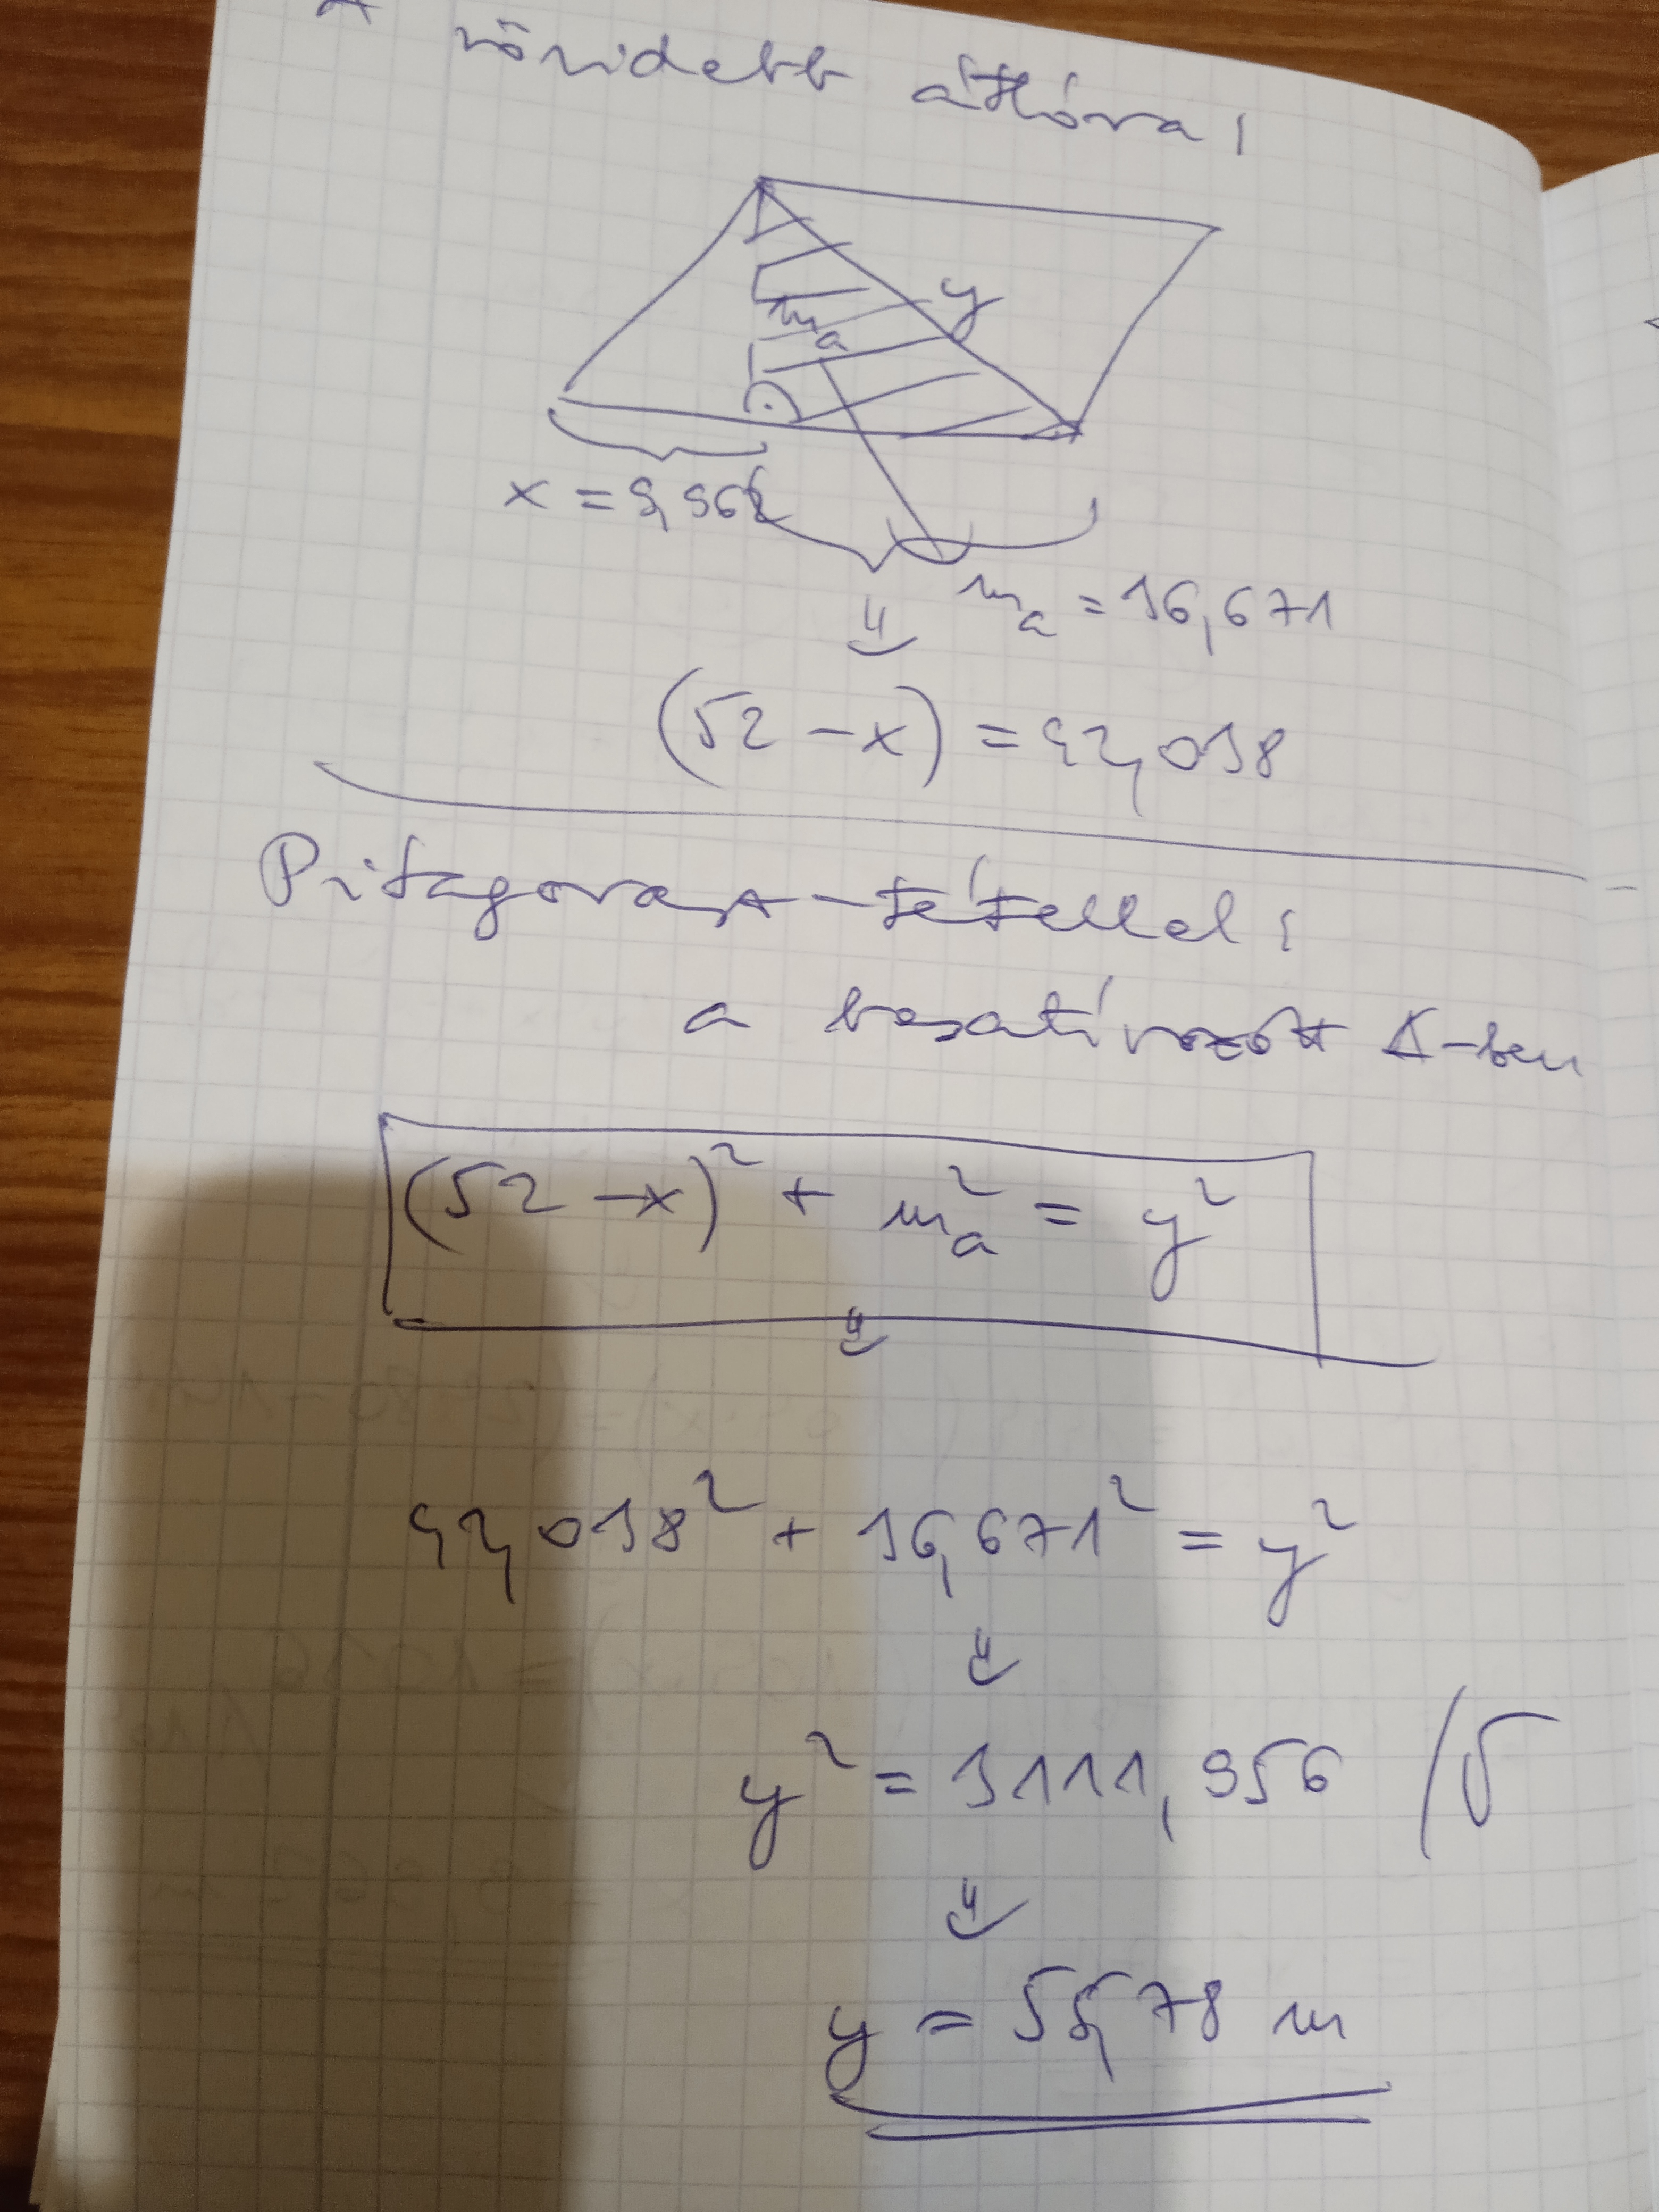 A rövidebb átlóra:
y
m a
x = 9,962
m a = 36,671
(52 - x) = 42,038
Pitagorasz-tétellel:
a besatírozott Δ-ben
(52 - x)² + m a ² = y²
42,038² + 36,671² = y²
y² = 3111,956 /√
y = 55,78 m